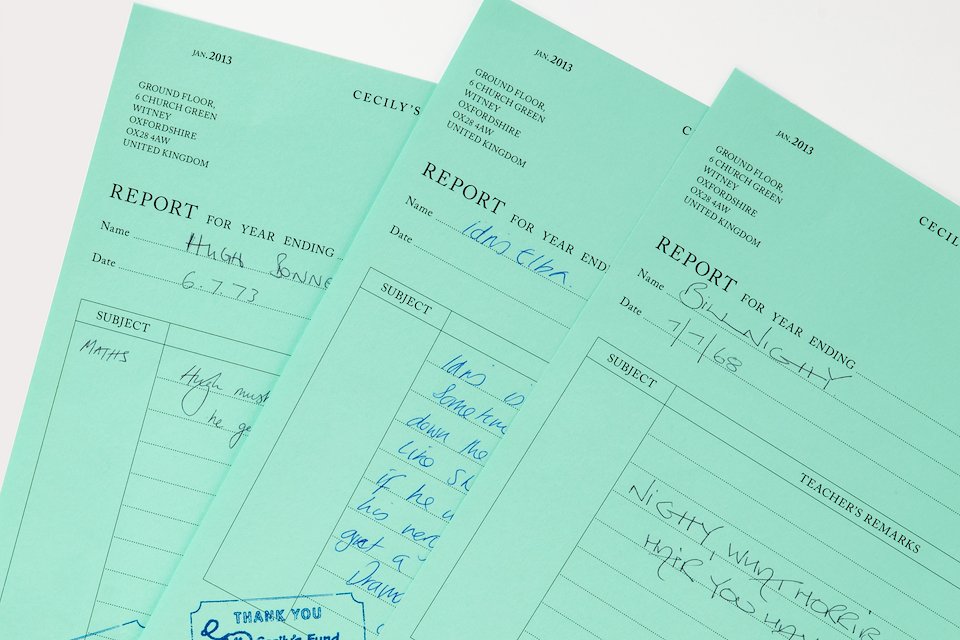 JAN. 2013
GROUND FLOOR,
6 CHURCH GREEN
WITNEY
OXFORDSHIRE
OX28 4AW
UNITED KINGDOM
CECILY'S
REPORT FOR YEAR ENDING
Name HUGH BONNE
Date 6.7.73
SUBJECT
MATHS
Hugh must
he ge
JAN. 2013
GROUND FLOOR,
6 CHURCH GREEN
WITNEY
OXFORDSHIRE
OX28 4AW
UNITED KINGDOM
C
REPORT FOR YEAR END
Name Idris Elba
Date
SUBJECT
Idris is
Sometim
down the
like Sh
if he
his
get a
Drama
THANK YOU
Cecily's Fund
JAN. 2013
GROUND FLOOR,
6 CHURCH GREEN
WITNEY
OXFORDSHIRE
OX28 4AW
UNITED KINGDOM
CECILY
REPORT FOR YEAR ENDING
Name BILL NIGHY
Date 7/7/68
SUBJECT
TEACHER'S REMARKS
NIGHY, WHAT HORRIB
HAIR YOU HAV